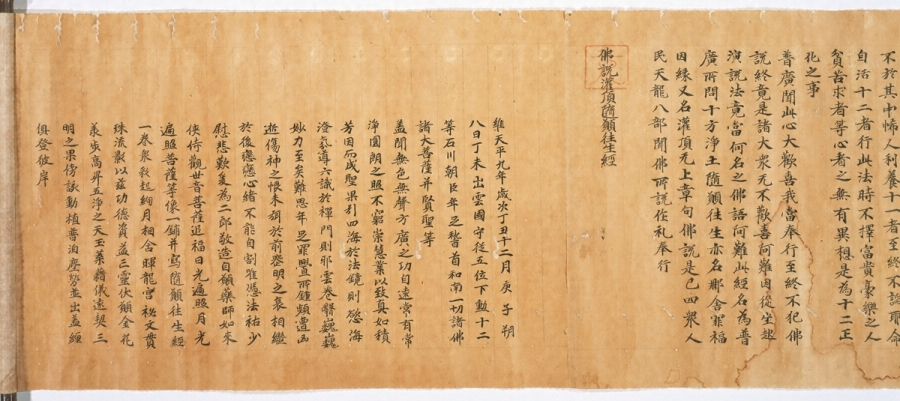 不於其中悕人利養十一者至終不認邪命
自活十二者行此法時不擇富貴豪樂之人
貧苦求者等心看之無有異想是為十二正
化之事
普廣聞此心大歡喜我當奉行至終不犯佛
說終竟是諸大衆无不歡喜阿難因從坐起
演說法竟當何名之佛語阿難此經名為普
廣所問十方淨土隨願往生亦名那舍罪福
因緣又名灌頂无上章句佛說是已四衆人
民天龍八部聞佛所說作礼奉行
佛說灌頂隨願往生經
維天平九年歲次丁丑十二月庚子朔
八日丁未出雲國守從五位下勳十二
等石川朝臣年足稽首和南一切諸佛
諸大菩薩并賢聖等
蓋聞無色無聲方廣之功自遠常有常
淨圓朗之照不窮崇慧業以致真如積
芳因而成聖果引四海於法鏡則慾海
澄氛導六識於禪門則邪雲卷翳巍巍
妙力至矣難思年足罪舋所鍾頻遭凶
逝傷神之恨未弭於前慕明之哀相繼
於後戀戀心緒不能自割唯憑法祐少
慰悲歎爰為二郎敬造自願藥師如來
俠侍觀世音菩薩追福日光遍照月光
遍照菩薩等像一鋪并寫隨願往生經
一卷衆穀起絢月相含暉龍宮秘文貫
珠流影以茲功德資益三靈伏願金花
兼㡭高昇五淨之天玉藥籍儀遠契三
明之果傍詠動植普洎塵勞並出蓋纏
俱登彼岸